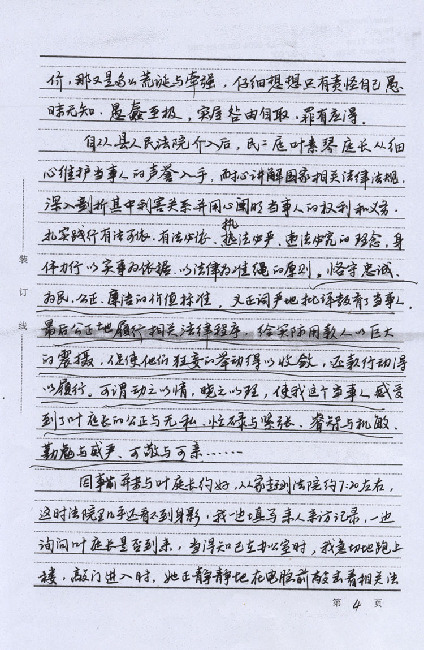 价，那又是多么荒诞与牵强，仔细想想只有责怪自己愚
昧无知，愚蠢至极，实属咎由自取，罪有应得。
自从县人民法院介入后，民二庭叶素琴庭长从细
心维护当事人的声誉入手，耐心讲解国家相关法律法规，
深入剖析其中利害关系并用心阐明当事人的权利和义务，
扎实践行有法可依、有法必依、执法必严、违法必究的理念，身
体力行以实事为依据，以法律为准绳的原则。恪守忠诚、
为民、公正、廉洁的价值标准，又正词严地批评教育了当事人，
最后公正地履行相关法律程序，给实际用款人以巨大
的震撼，促使他们狂妄的举动得以收敛，还款行动得
以履行。可谓动之以情，晓之以理，使我这个当事人感受
到了叶庭长的公正与无私、忙碌与紧张、睿智与机敏、
勤勉与威严、可敬与可亲……
因事前并未与叶庭长约好，从家走到法院约7:20左右，
这时法院里几乎还看不到身影，我一边填写来人来访记录，一边
询问叶庭长是否到来，当得知已在办公室时，我急切地跑上
楼，敲门进入时，她正静静地在电脑前敲击着相关法
装
订
线
第 4 页